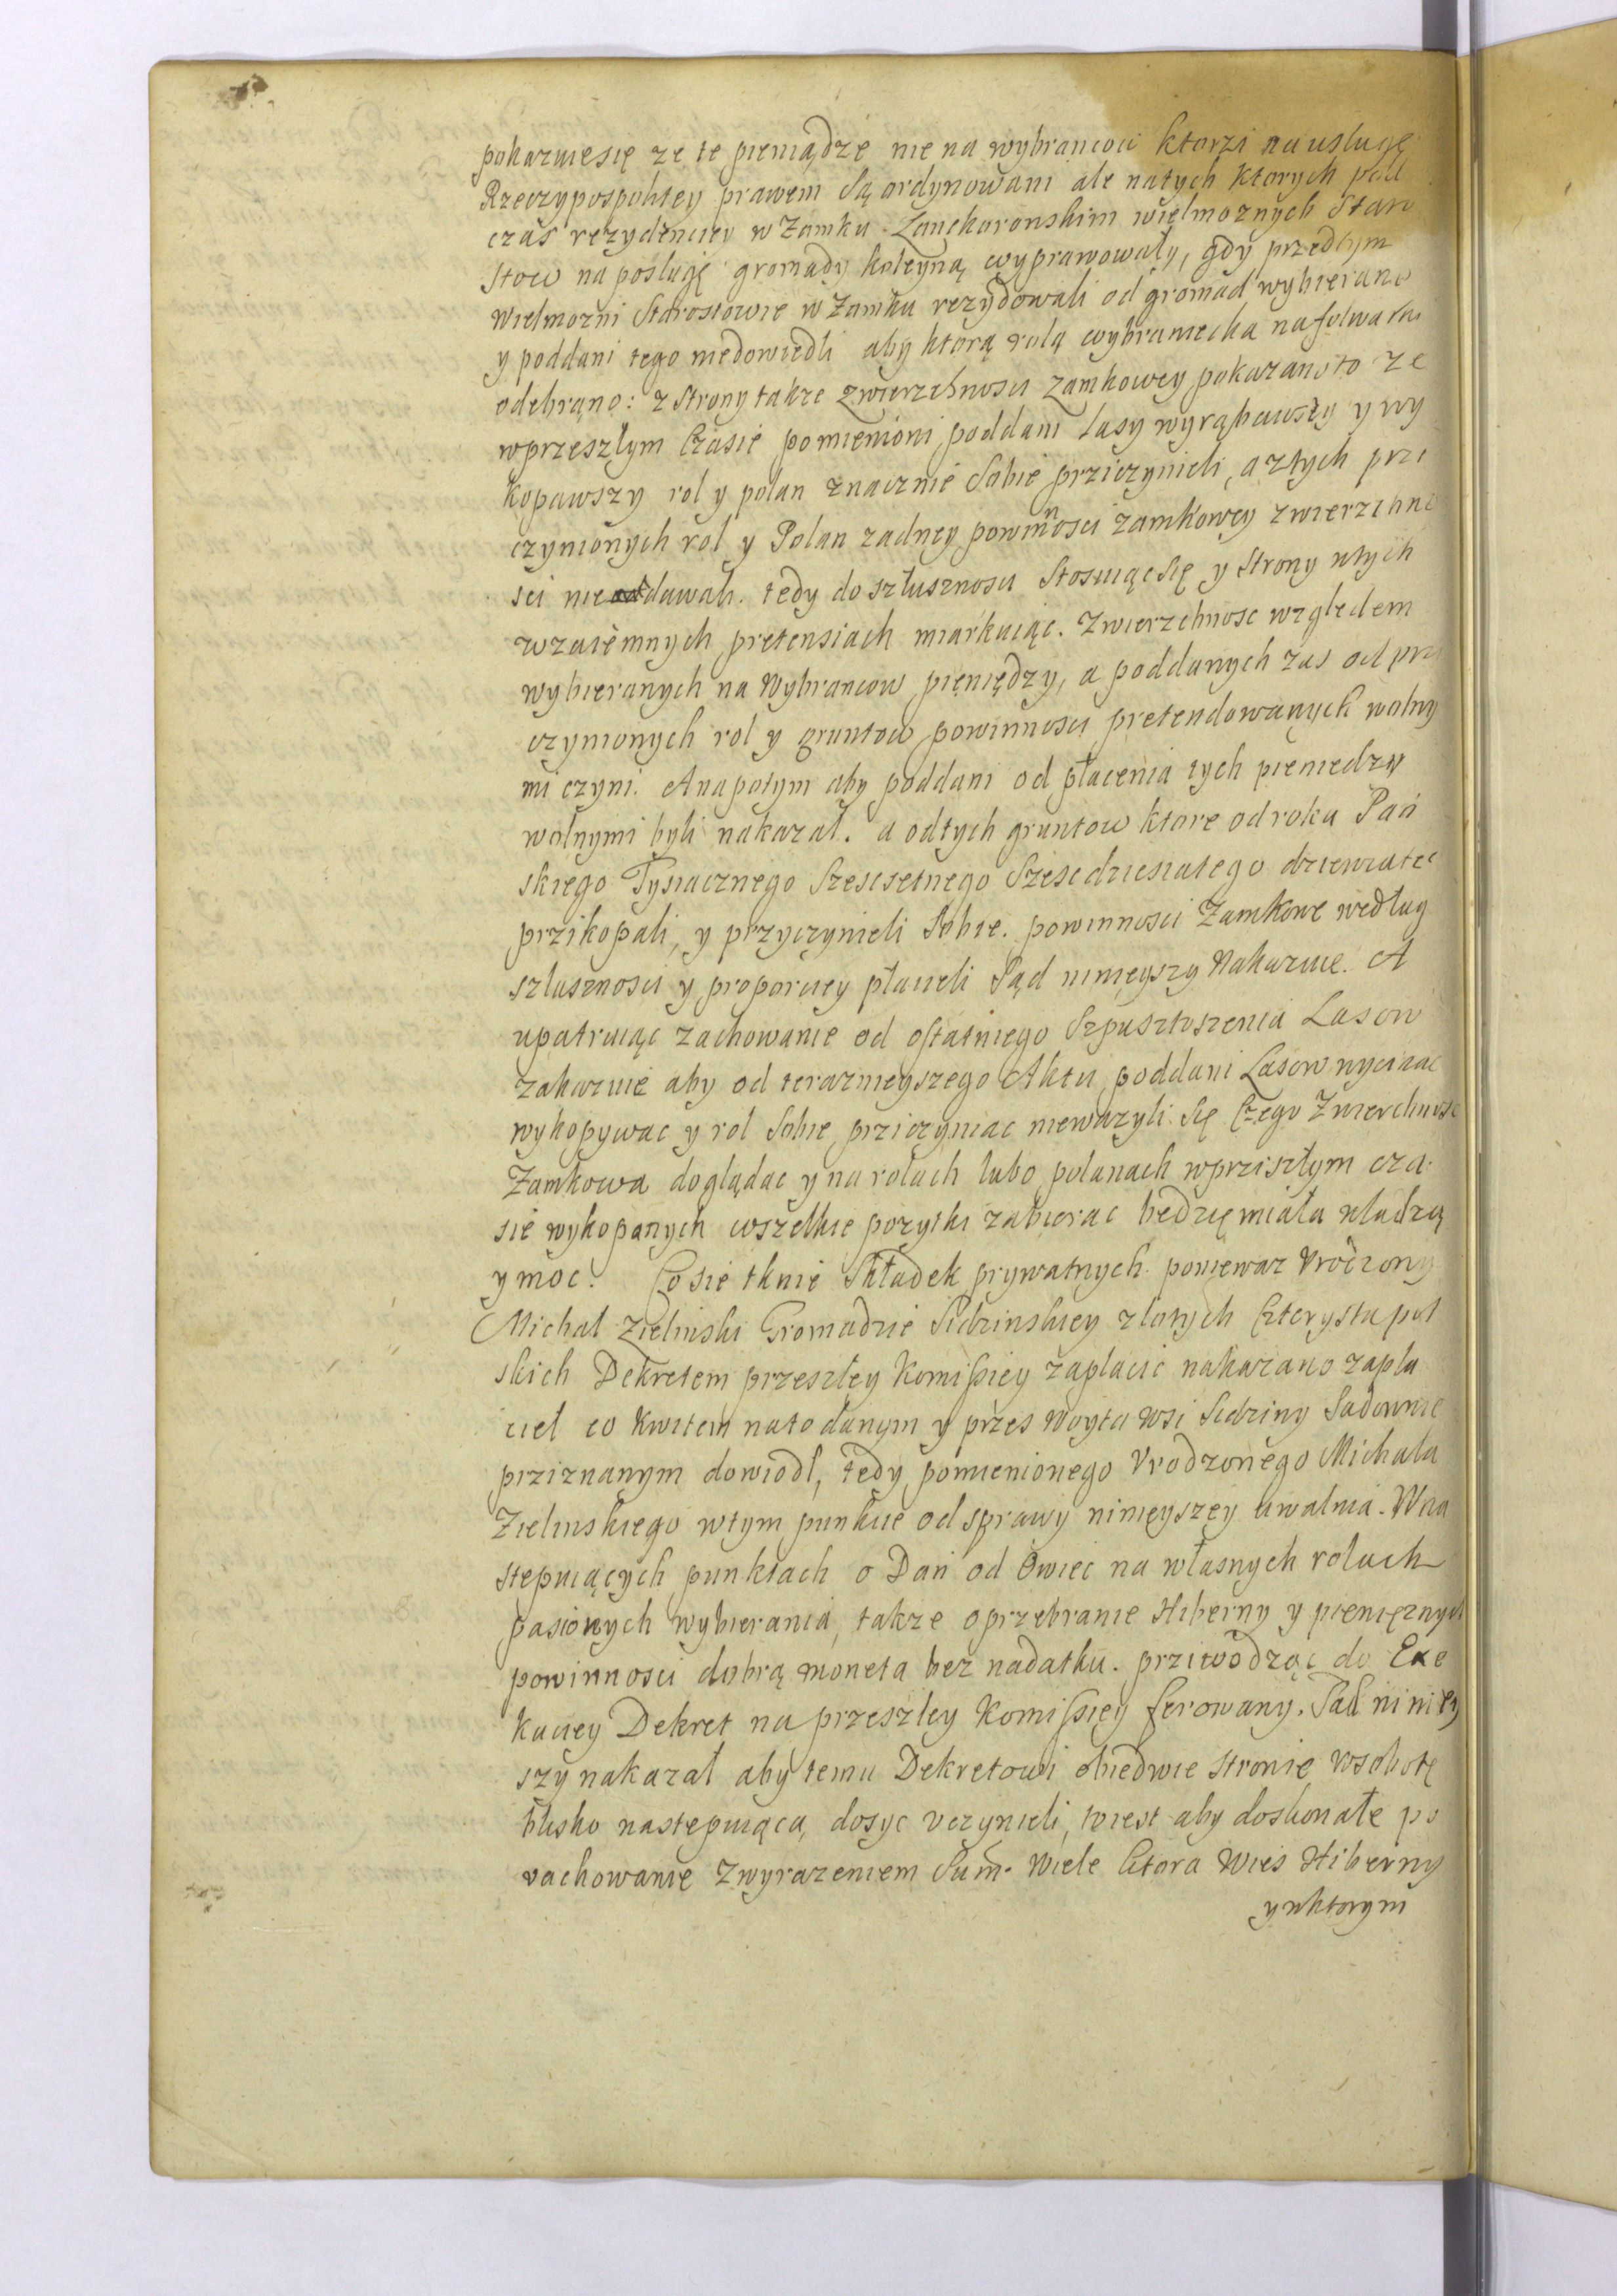 pokazuiesię ze te pieniądze nie na wybrancow ktorzi na usługę
Rzeczypospolitey prawem są ordynowani ale natych ktorych pod
czas rezydenciey w Zamku Lanckoronskim wielmoznych Staro
stow na posługę gromady koleyną wyprawowały, gdy przedtym
Wielmozni Starostowie w Zamku rezydowali od gromad wybierano
y poddani tego niedowiedli aby ktorą rolą wybraniecka nafolwarki
odebrąno: z Strony takze zwierzchnosci zamkowey pokazanoto ze
wprzeszłym Czasie pomienioni poddani lasy wyrąbawszy y wy
kopawszy rol y polan znacznie Sobie przicżynieli, a ztych przi
czynionych rol y Polan zadney powinnosci zamkowey zwierzchno
sci nieoddawali. tedy do szłusznosci Stosuiąc się y Strony wtych
wzaiemnych pretensiach miarkuiąc. Zwierzchnosc względem
wybieranych na Wybrancow pięniędzy, a poddanych zas od przy
czynionych rol y gruntow powinnosci pretendowanych wolny
mi czyni. Anapotym aby poddani od płacenia tych pieniedzy
wolnymi byli nakazał. a odtych gruntow ktore od roku Pań
skiego Tysiacznego Szescsetnego Szescdziesiatego dziewiate
przikopali, y przyczynieli Sobie. powinnosci Zamkowe według
szłusznosci y proporciey płacieli Sąd ninieyszy Nakazuie. A
upatruiąc zachowanie od ostatniego Szpusztoszenia Lasow
zakazuie aby od teraznieyszego Aktu poddani Lasow wycinac
wykopywac y rol Sobie przicżyniac niewazyli Się Czego Zwierchnosc
Zamkowa doglądac y na rolach lubo polanach wprziszłym cza
sie wykopanych wszelkie pozytki zabierac będzię miała władzą
y moc. Co sie tknie Składek prywatnych poniewaz Vrodzony
Michał Zielinski Gromadzie Sidzinskiey złotych Czterysta pol
skich Dekretem przeszłey Komissiey zapłacic nakazano zapła
cieł co Kwitem nato danym y przes Woyta wsi Sidziny Sadownie
prziznanym dowiodł, tedy pomienionego Vrodzonego Michała
Zielinskiego wtym punkcie od sprawy ninięyszey uwalnia. Wna
stepuiących punktach o Dań od Owiec na własnych rolach
pasionych wybierania, takze oprzebranie Hiberny y pienięznych
powinnosci dobrą moneta bez nadatku. prziwodząc do Exe
kuciey Dekret na przeszłey Komissiey ferowany. Sad niniey
szy nakazał aby temu Dekretowi obiedwie stronie wsobotę
blisko nastepuiąca, dosyc vczynieli, toiest aby doskonałe po
rachowanie Zwyrazeniem Sum. Wiele Ktora Wies Hiberny
ywktorym